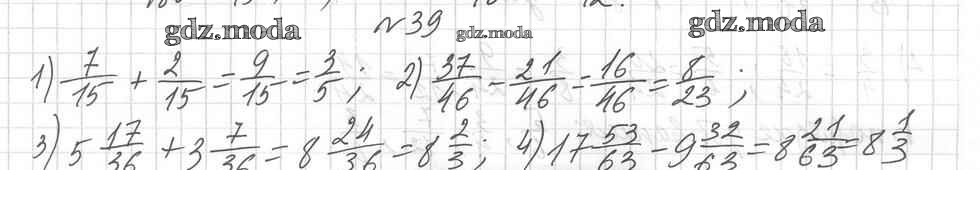 gdz.moda №39 gdz.moda gdz.moda
1) 7/15 + 2/15 = 9/15 = 3/5; 2) 37/46 - 21/46 = 16/46 = 8/23;
3) 5 17/36 + 3 7/36 = 8 24/36 = 8 2/3; 4) 17 53/63 - 9 32/63 = 8 21/63 = 8 1/3